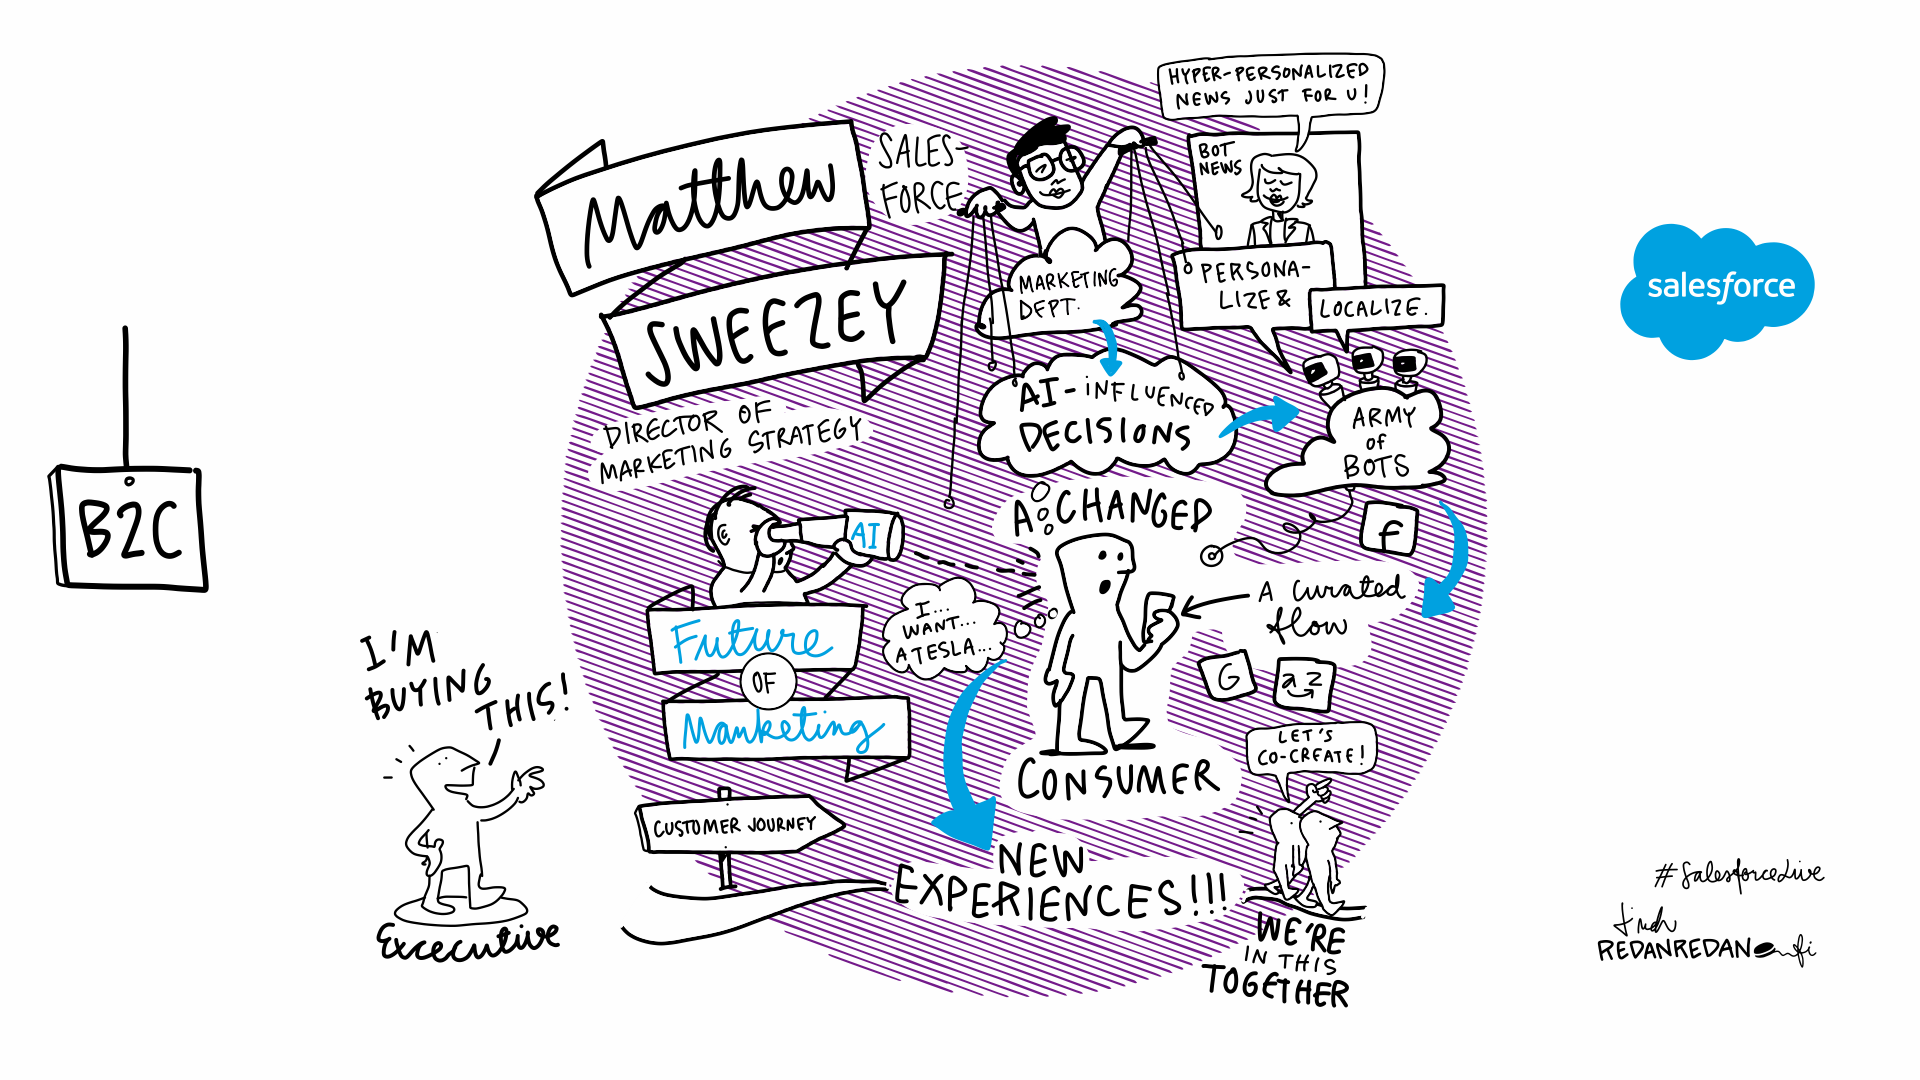 Matthew
SWEEZEY
SALES-
FORCE
DIRECTOR OF
MARKETING STRATEGY
HYPER-PERSONALIZED
NEWS JUST FOR U!
BOT
NEWS
PERSONA-
LIZE &
LOCALIZE.
MARKETING
DEPT.
AI-iNFLUENCED
DECISIONS
ARMY
of
BOTS
salesforce
B2C
AI
Future
OF
Marketing
A CHANGED
CONSUMER
I...
WANT...
A TESLA...
f
A Curated
flow
G
a z
I'M
BUYING
THIS!
Excecutive
CUSTOMER JOURNEY
NEW
EXPERIENCES!!!
LET'S
CO-CREATE!
WE'RE
IN THIS
TOGETHER
#SalesforceLive
REDANREDAN